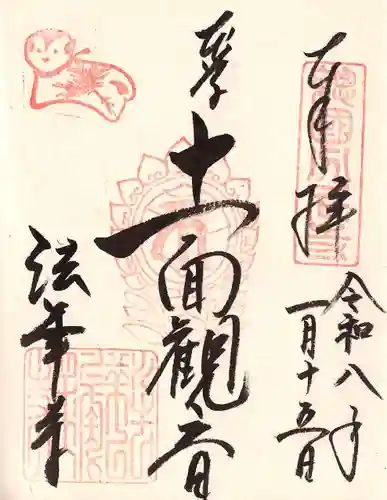 奉拝
令和八年
一月十五日
本尊
十一面觀音
法華寺